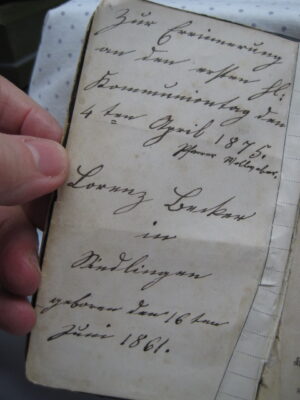 Zur Erinnerung
an den ersten hl.
Kommuniontag den
4 ten April 1875.
Pfarrer
Lorenz Becker
in
Riedlingen
geboren den 16 ten
Juni 1861.